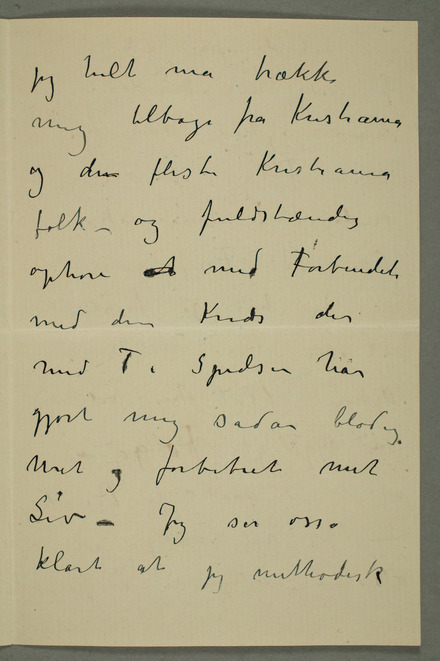 jeg helt må trække
mig tilbage fra Kristiania
og de fleste Kristiania
folk – og fuldstændig
ophøre med Forbindelse
med den Kreds der
med T i Spidsen har
gjort mig sådan blodig
Uret og forbitret mit
Liv – Jeg ser også
klart at jeg methodisk